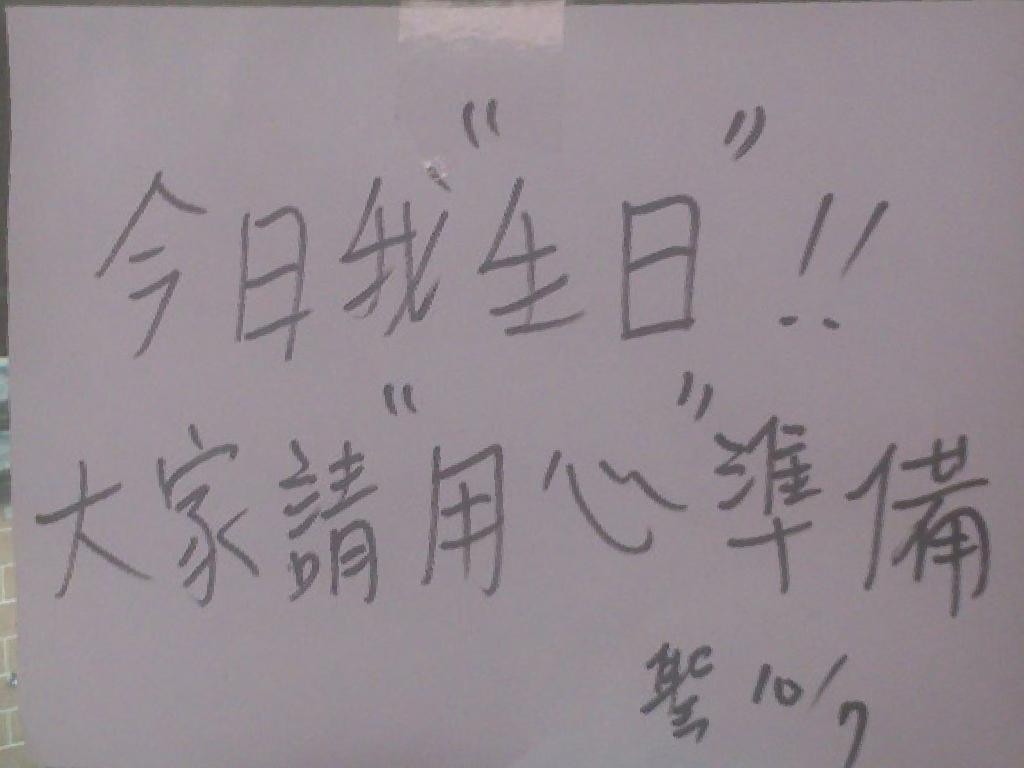 今日我“生日”!!
大家請“用心”準備
紫 10/7